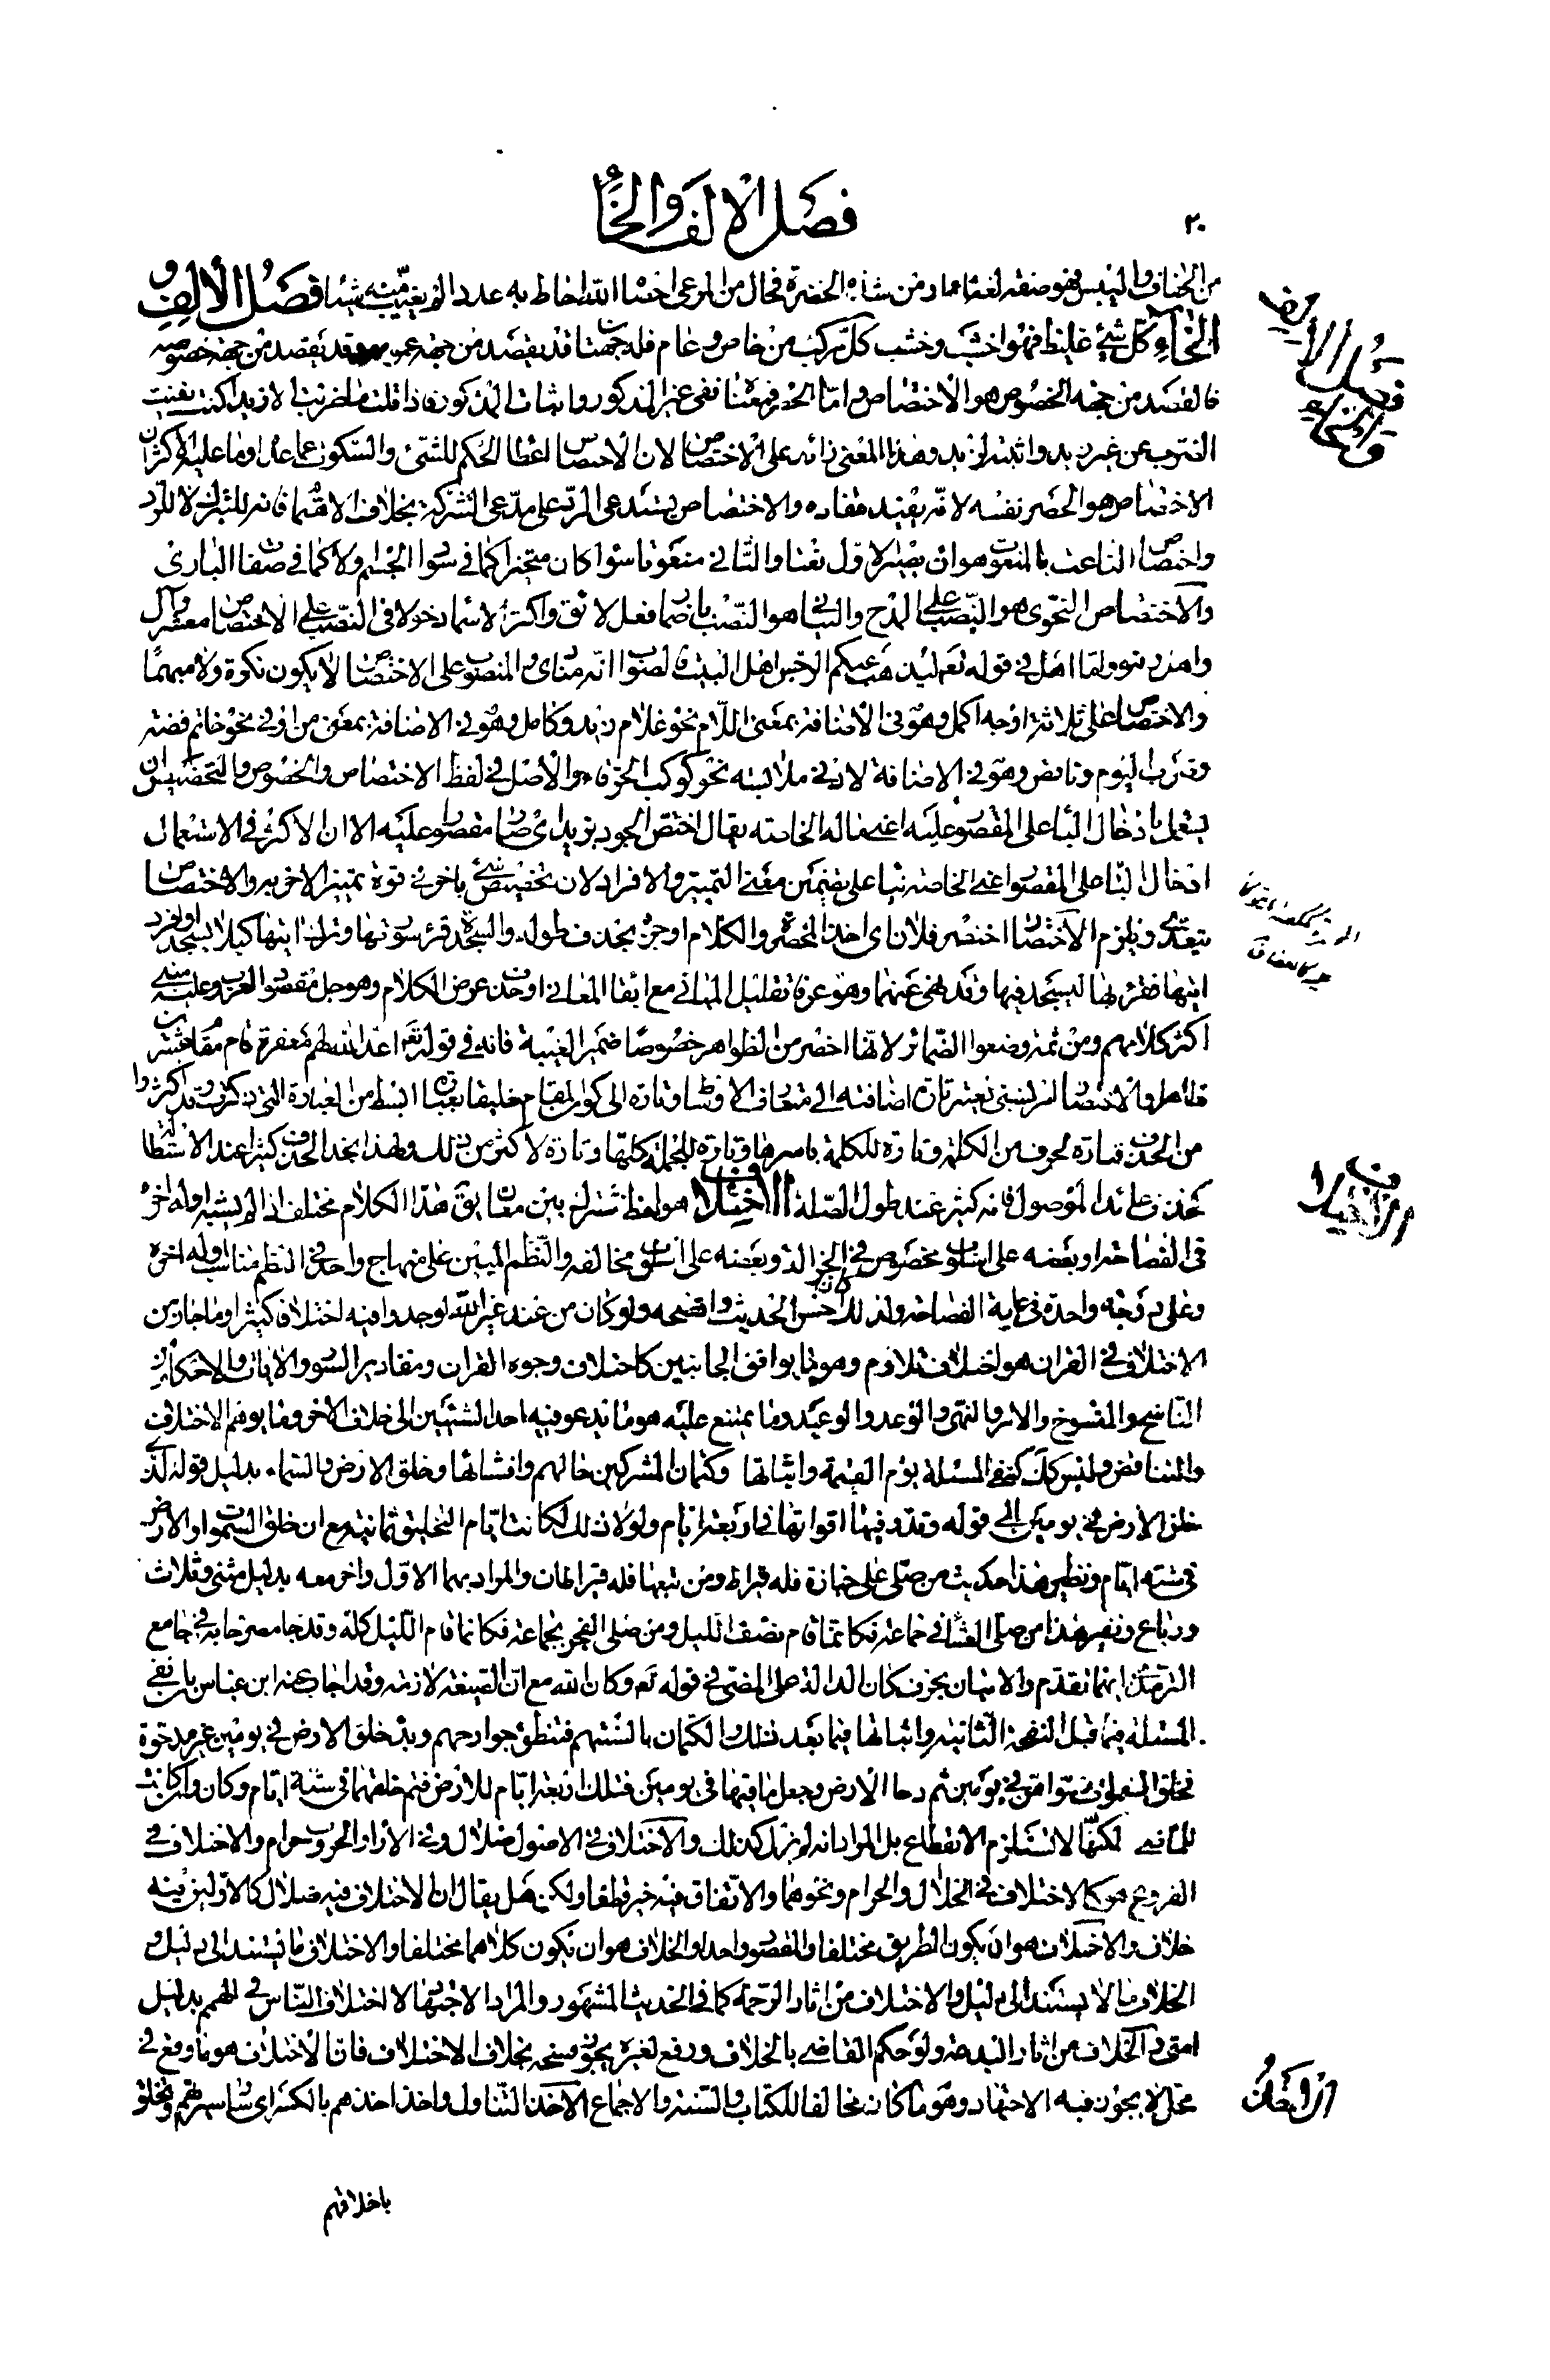 ٢٠
فصل الالف والخاء
من الخفاف واليبس فهو صفة لغثاء وعماد من شدة الخضرة فحال من المرعى احصاء الله احاط به عددا لم يغب منه شيئا فصل الالف و
الخاء كل شئ غليظ فهو اخشب وخشب كل مركب من خاص وعام فله جهتان قد يقصد من جهة عمومه وقد يقصد من جهة خصوصه
فالقصد من جهة الخصوص هو الاختصاص واما الحصر فمعناه نفى غير المذكور واثبات المذكور فاذا قلت ما ضربت الا زيدا كنت نفيت
الضرب عن غير زيد واثبته لزيد وهذا المعنى زائد على الاختصاص لان الاختصاص اعطاء الحكم للشئ والسكوت عما عداه وما عليه الاكثر ان
الاختصاص هو الحصر نفسه لانه يفيد مفاده والاختصاص يستدعى الرد على مدعى الشركة بخلاف الاهتمام فانه للتبرك لا للرد
واختصاص الناعت بالمنعوت هو ان يصير الاول نعتا والثانى منعوتا سواء كان متحيزا كما فى سواد الجسم ولا كما فى صفات البارى
والاختصاص النحوى هو النصب على المدح والبيانى هو النصب باضمار فعل لائق واكثر الاسماء دخولا فى النصب على الاختصاص معشر وآل
واهل وبنو واما اهل فى قوله تع ليذهب عنكم الرجس اهل البيت فالصواب انه منادى والمنصوب على الاختصاص لا يكون نكرة ولا مبهما
والاختصاص على ثلاثة اوجه اكمل وهو فى الاضافة بمعنى اللام نحو غلام زيد وكامل وهو فى الاضافة بمعنى من او فى نحو خاتم فضة
وضرب اليوم وناقص وهو فى الاضافة لادنى ملابسة نحو كوكب الخرقاء والاصل فى لفظ الاختصاص والخصوص والتخصيص ان
يستعمل بادخال الباء على المقصور عليه اعنى ما له الخاصة يقال اختص الجود بزيد اى صار مقصورا عليه الا ان الاكثر فى الاستعمال
ادخال الباء على المقصور اعنى الخاصة بناء على تضمين معنى التمييز والافراد لان تخصيص شئ باخر فى قوة تمييز الاخر به والاختصاص
يتعدى ويلزم الاختصار اختصر فلان اى اخذ المخصرة والكلام اوجزه بحذف طوله والسجدة قرء سورتها وترك ايتها كيلا يسجد او افرد
ايتها فقرء بها ليسجد فيها وقد نهى عنهما وهو عرفا تقليل المبانى مع ابقاء المعانى او حذف عرض الكلام وهو جل مقصود العرب وعليه مبنى
اكثر كلامهم ومن ثمة وضعوا الضمائر لانها اخصر من الظواهر خصوصا ضمير الغيبة فانه فى قوله تع اعد الله لهم مغفرة قام مقام عشرين
ظاهرا والاختصار امر نسبى يعتبر تارة اضافته الى متعارف الاوساط وتارة الى كون المقام خليقا بعبارة ابسط من العبارة التى ذكرت وقد اكثروا
من الحذف فتارة لحرف من الكلمة وتارة للكلمة باسرها وتارة للجملة كلها وتارة لاكثر من ذلك ولهذا تجد الحذف كثيرا عند الاستطالة
كحذف عائد الموصول فانه كثير عند طول الصلة الاختلاف هو لفظ مشترك بين معان يق هذا الكلام مختلف اذا لم يشبه اوله اخره
فى الفصاحة او بعضه على اسلوب مخصوص فى الجزالة وبعضه على اسلوب يخالفه والنظم المبين على منهاج واحد فى النظم مناسب اوله اخره
وعلى درجة واحدة فى غاية الفصاحة ولذلك كان احسن الحديث وافصحه ولو كان من عند غير الله لوجدوا فيه اختلافا كثيرا وما جاز من
الاختلاف فى القران هو اختلاف تلاوم وهو ما يوافق الجانبين كاختلاف وجوه القران ومقادير السور والايات والاحكام من
الناسخ والمنسوخ والامر والنهى والوعد والوعيد وما يمتنع عليه هو ما يدعو فيه احد الشيئين الى خلاف الاخر وما يوهم الاختلاف
والتناقض وليس كك كنفى المسئلة يوم القيمة واثباتها وكتمان المشركين حالهم وافشائها وخلق الارض والسماء بدليل قوله الذى
خلق الارض فى يومين الى قوله وقدر فيها اقواتها فى اربعة ايام ولولا ذلك لكانت ايام التخليق ثمانية مع ان خلق السموات والارض
فى ستة ايام ونظير هذا حديث من صلى على جنازة فله قيراط ومن تبعها فله قيراطان والمراد بهما الاول واخر معه بدليل مثنى وثلاث
ورباع ونظير هذا من صلى العشاء فى جماعة فكانما قام نصف الليل ومن صلى الفجر بجماعة فكانما قام الليل كله وقد جاء مصرحا به فى جامع
الترمذى انهما تقدم والاتيان بحرف كان الدالة على المضى فى قوله تع وكان الله مع ان الصفة لازمة وقد اجاب عنه ابن عباس بان نفى
المسئلة فيما قبل النفخة الثانية واثباتها فيما بعد ذلك والكتمان بالسنتهم فتنطق جوارحهم وبدء خلق الارض فى يومين غير مدحوة
فخلق السموات فسواهن فى يومين ثم دحا الارض وجعل ما فيها فى يومين فتلك اربعة ايام للارض فتم خلقهما فى ستة ايام وكان وان كانت
للماضى لكنها لا تستلزم الانقطاع بل المراد انه لم يزل كذلك والاختلاف فى الاصول ضلال وفى الاراء والحروب حرام والاختلاف فى
الفروع هو كالاختلاف فى الحلال والحرام ونحوهما والاتفاق فيه خير قطعا ولكن هل يقال ان الاختلاف فيه ضلال كالاولين فيه
خلاف والاختلاف هو ان يكون الطريق مختلفا والمقصود واحدا والخلاف هو ان يكون كلاهما مختلفا والاختلاف ما يستند الى دليل و
الخلاف ما لا يستند الى دليل والاختلاف من اثار الرحمة كما فى الحديث المشهور والمراد الاجتهاد لا اختلاف الناس فى الهمم بدليل
امتى والخلاف من اثار البدعة ولو حكم القاضى بالخلاف ورفع لغيره يجوز فسخه بخلاف الاختلاف فان الاختلاف هو ما وقع فى
محل لا يجوز فيه الاجتهاد وهو ما كان مخالفا للكتاب والسنة والاجماع الاخذ التناول واخذ اخذهم بالكسر اى سار سيرتهم وتخلق
باخلاقهم
فصل الالف
والخاء
الاختلاف